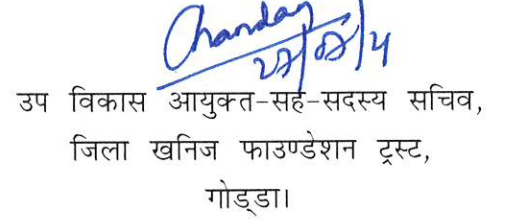 Chandan
उप विकास आयुक्त-सह-सदस्य सचिव,
जिला खनिज फाउण्डेशन ट्रस्ट,
गोड्डा।